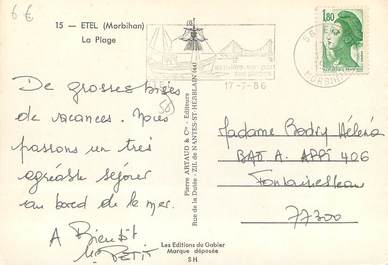 6 €
15 - ETEL (Morbihan)
La Plage
1,80
17-7-86
De grosses bises
de vacances. Nous
passons un très
agréable séjour
au bord de la mer.
A Bientôt
Pierre ARTAUD & Cie - Editeurs
Rue de la Dutée - ZIL de NANTES-ST-HERBLAIN (44)
Madame
BAT A. APPT 406
Fontainebleau
77300
Les Editions du Gabier
Marque déposée
SH